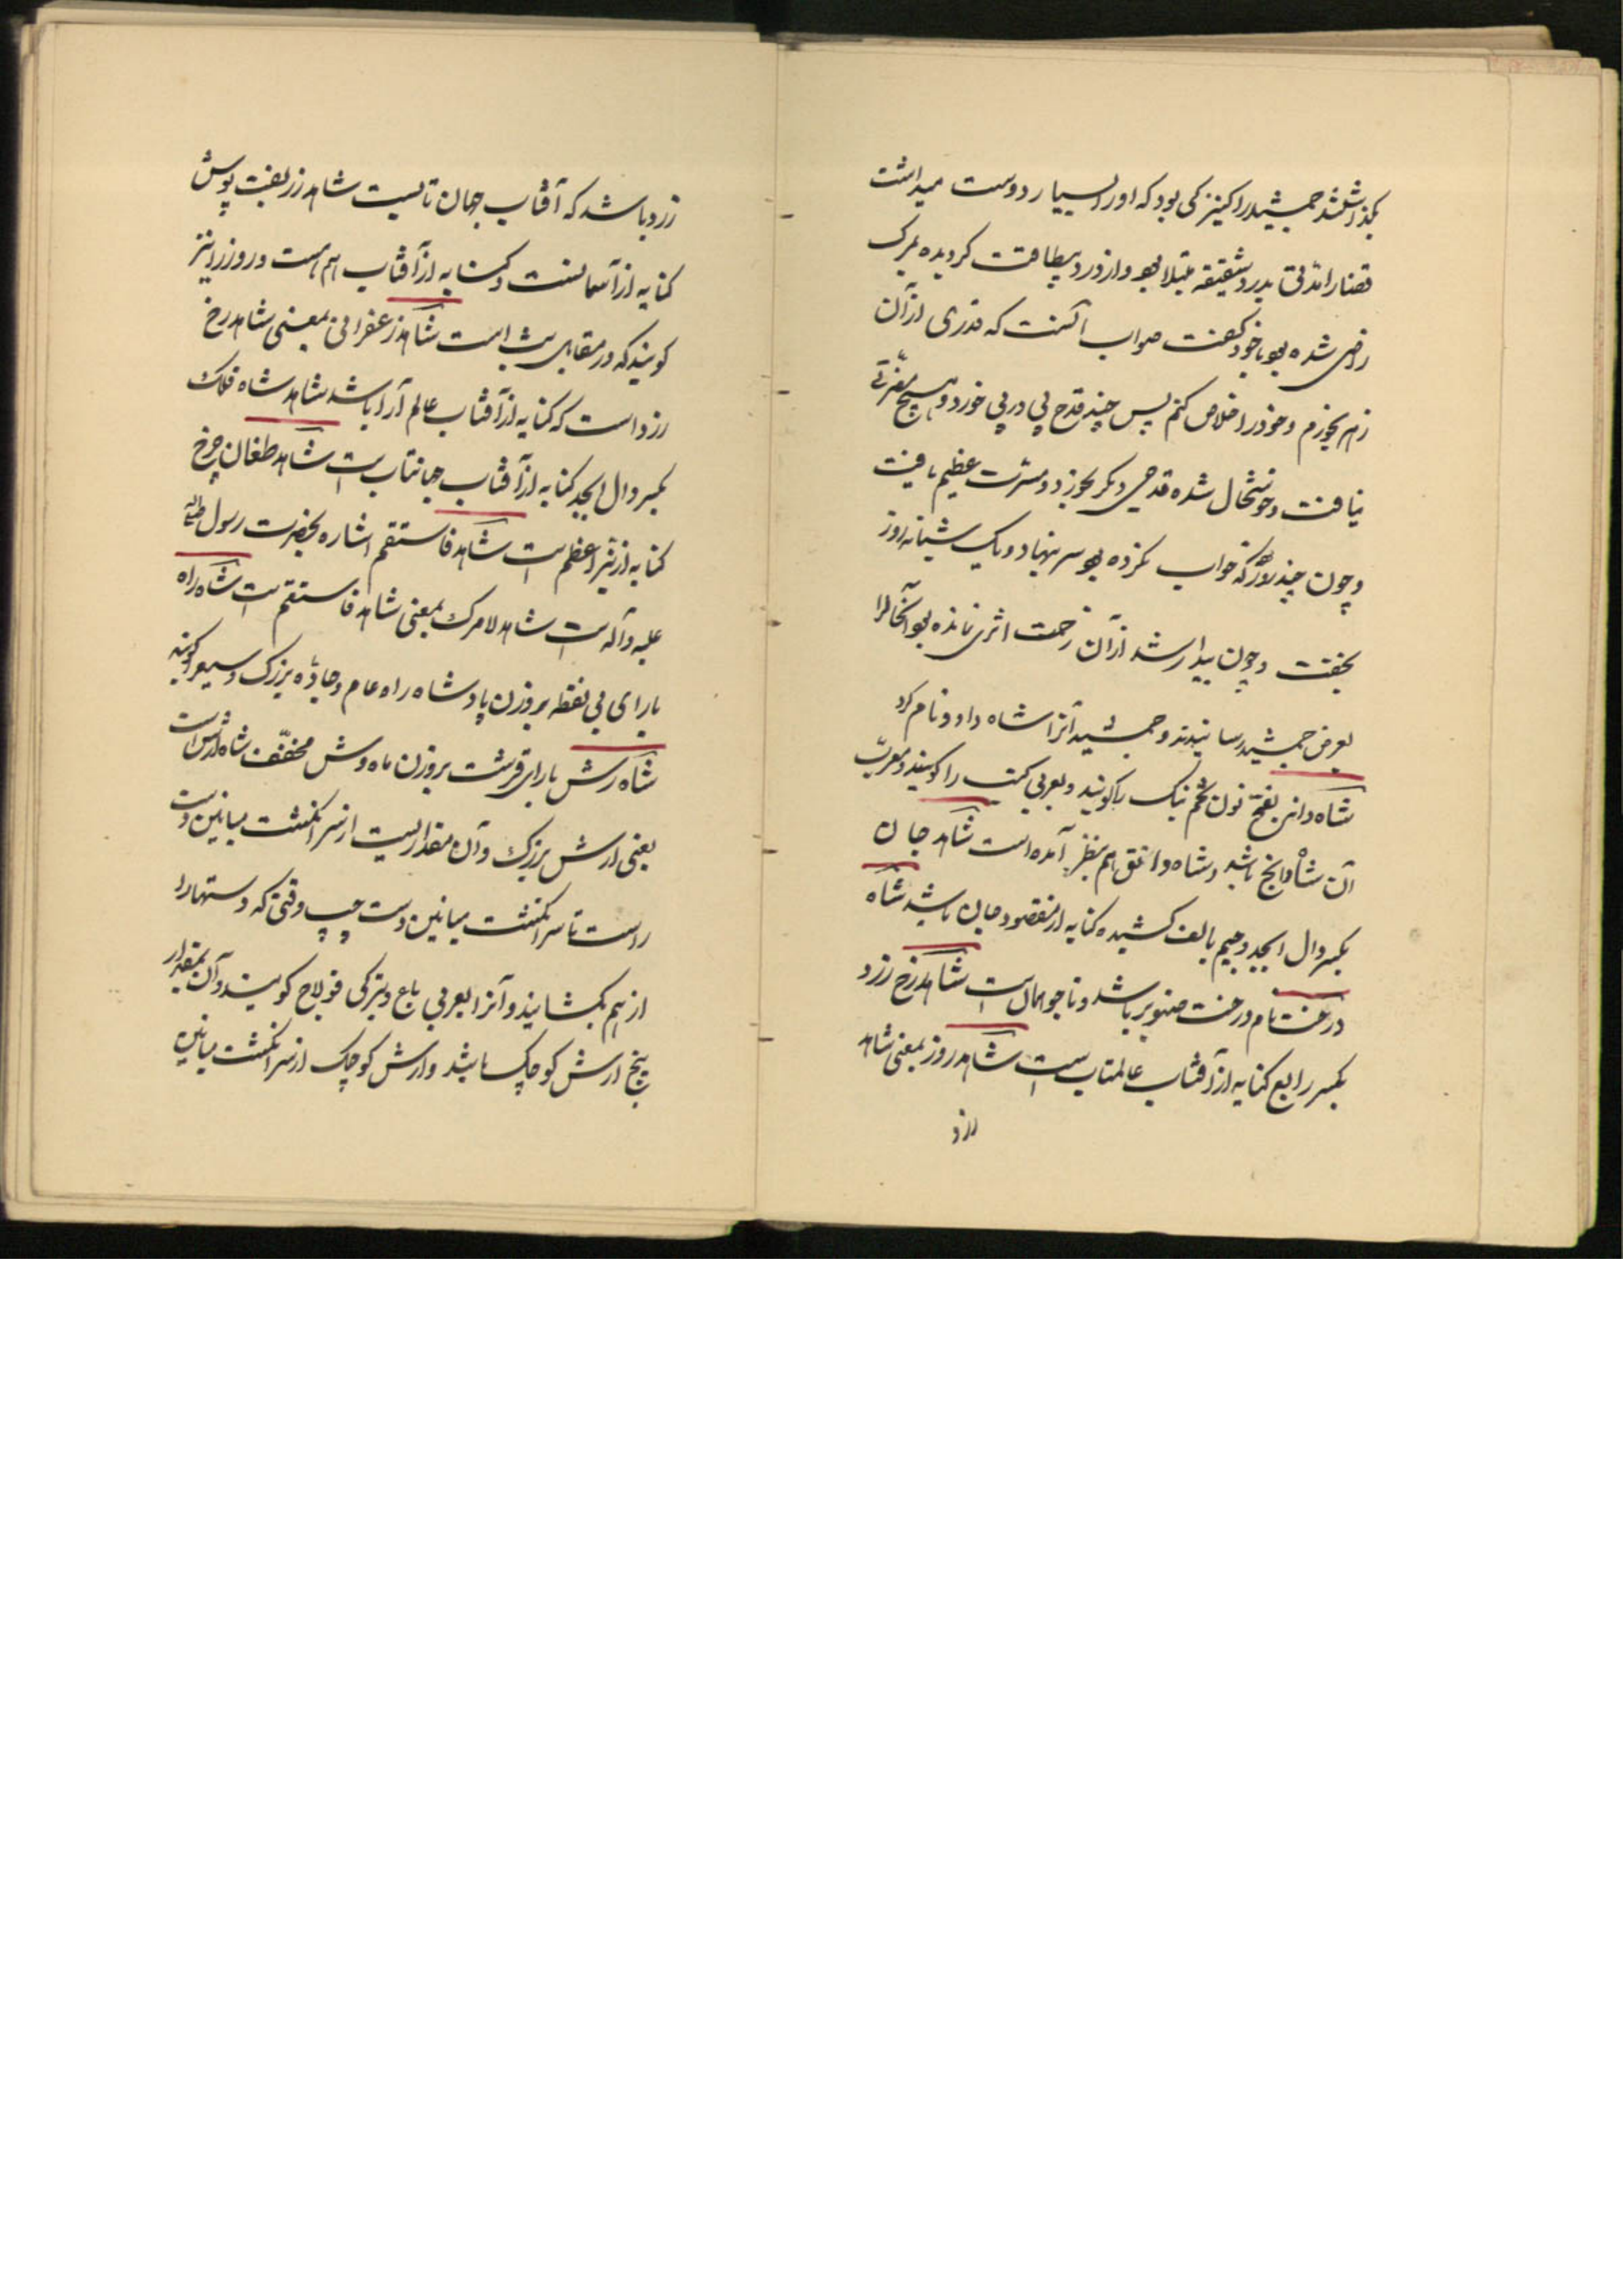 بکذاشتند جمشید را کنیزکی بود که او را بسیار دوست میداشت
قضا را مدتی بدرد شقیقه مبتلا بود و از درد بیطاقت کردیده بمرک
راضی شده بود با خود کفت صواب آنست که قدری از آن
زهر بخورم و خود را خلاص کنم پس چند قدح پی در پی خورد و هیچ مضرتی
نیافت و خوشحال شده قدحی دیکر بخورد و مسرت عظیم یافت
و چون چند روز که خواب نکرده بود سر بنهاد و یک شبانه روز
بخفت و چون بیدار شد از آن زحمت اثری نمانده بود آنحال را
بعرض جمشید رسانیدند و جمشید آنرا شاه دارو نام کرد
شاه دانج بفتح نون تخم بنک را کویند و بعربی کنب را کویند و معرب
آن شاه دانج باشد و شاه دانق هم بنظر آمده است شاهد جان
بکسر دال ابجد و جیم بالف کشیده کنایه از مقصود جان باشد شاه
درخت نام درخت صنوبر باشد و ناجو همان است شاهد رخ زرد
بکسر رابع کنایه از آفتاب عالمتاب است شاهد روز بمعنی شاهد
زرد
زرد باشد که آفتاب جهان تابست شاهد زربفت پوش
کنایه از آسمانست و کنایه از آفتاب هم هست و روز را نیز
کویند که در مقابل شب است شاهد زعفرانی بمعنی شاهد رخ
زرد است که کنایه از آفتاب عالم آرا باشد شاهد شاه فلک
بکسر دال ابجد کنایه از آفتاب جهانتاب است شاهد طغان چرخ
کنایه از نیر اعظم است شاهد فاستقم اشاره بحضرت رسول صلی الله
علیه و آله است شاهد لامرک بمعنی شاهد فاستقم است شاه راه
بارای بی نقطه بروزن پادشاه راه عام و جاده بزرک و سیع را کویند
شاه رش بارای قرشت بروزن ماه وش مخفف شاه ارش است
یعنی ارش بزرک و آن مقداریست از سر انکشت میانین دست
راست تا سر انکشت میانین دست چپ وقتی که دستها را
از هم بکشایند و آنرا بعربی باع و بترکی قولاج کویند و آن بمقدار
پنج ارش کوچک باشد و ارش کوچک از سر انکشت میانین